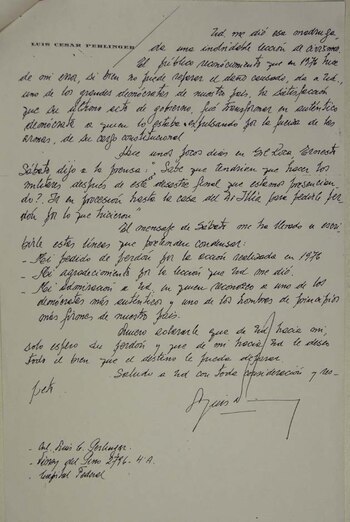 Ud me dió esa madruga-
LUIS CESAR PERLINGER
da una inolvidable lección de civismo.
El público reconocimiento que en 1976 hice
de mi error, si bien no puede reparar el daño causado, da a Ud,
uno de los grandes demócratas de nuestro país, la satisfacción
que su último acto de gobierno, fué transformar en auténtico
demócrata a quien lo estaba expulsando por la fuerza de las
armas, de su cargo constitucional.
Hace unos pocos días en Ernesto
Sábato dijo a la prensa: "Sabe que tendrían que hacer los
militares después de este desastre final que estamos presencian-
do? Ir en procesión hasta la casa del Dr Illia para pedirle per-
dón por lo que hicieron
El mensaje de Sábato me ha llevado a escri-
birle estas líneas que pretenden condensar:
- Mi pedido de perdón por la acción realizada en 1966
- Mi agradecimiento por la lección que Ud me dió.
- Mi admiración a Ud, en quien reconozco a uno de los
demócratas más auténticos y uno de los hombres de principios
más firmes de nuestro país.
Quiero aclararle que de Ud, hacia mí,
solo espero su perdón y que de mí hacia Ud le deseo
todo el bien que el destino le pueda deparar.
Saludo a Ud con toda consideración y res-
peto
Luis
- Cnl. Luis C. Perlinger
- 2796 - 4º A.
- Capital Federal